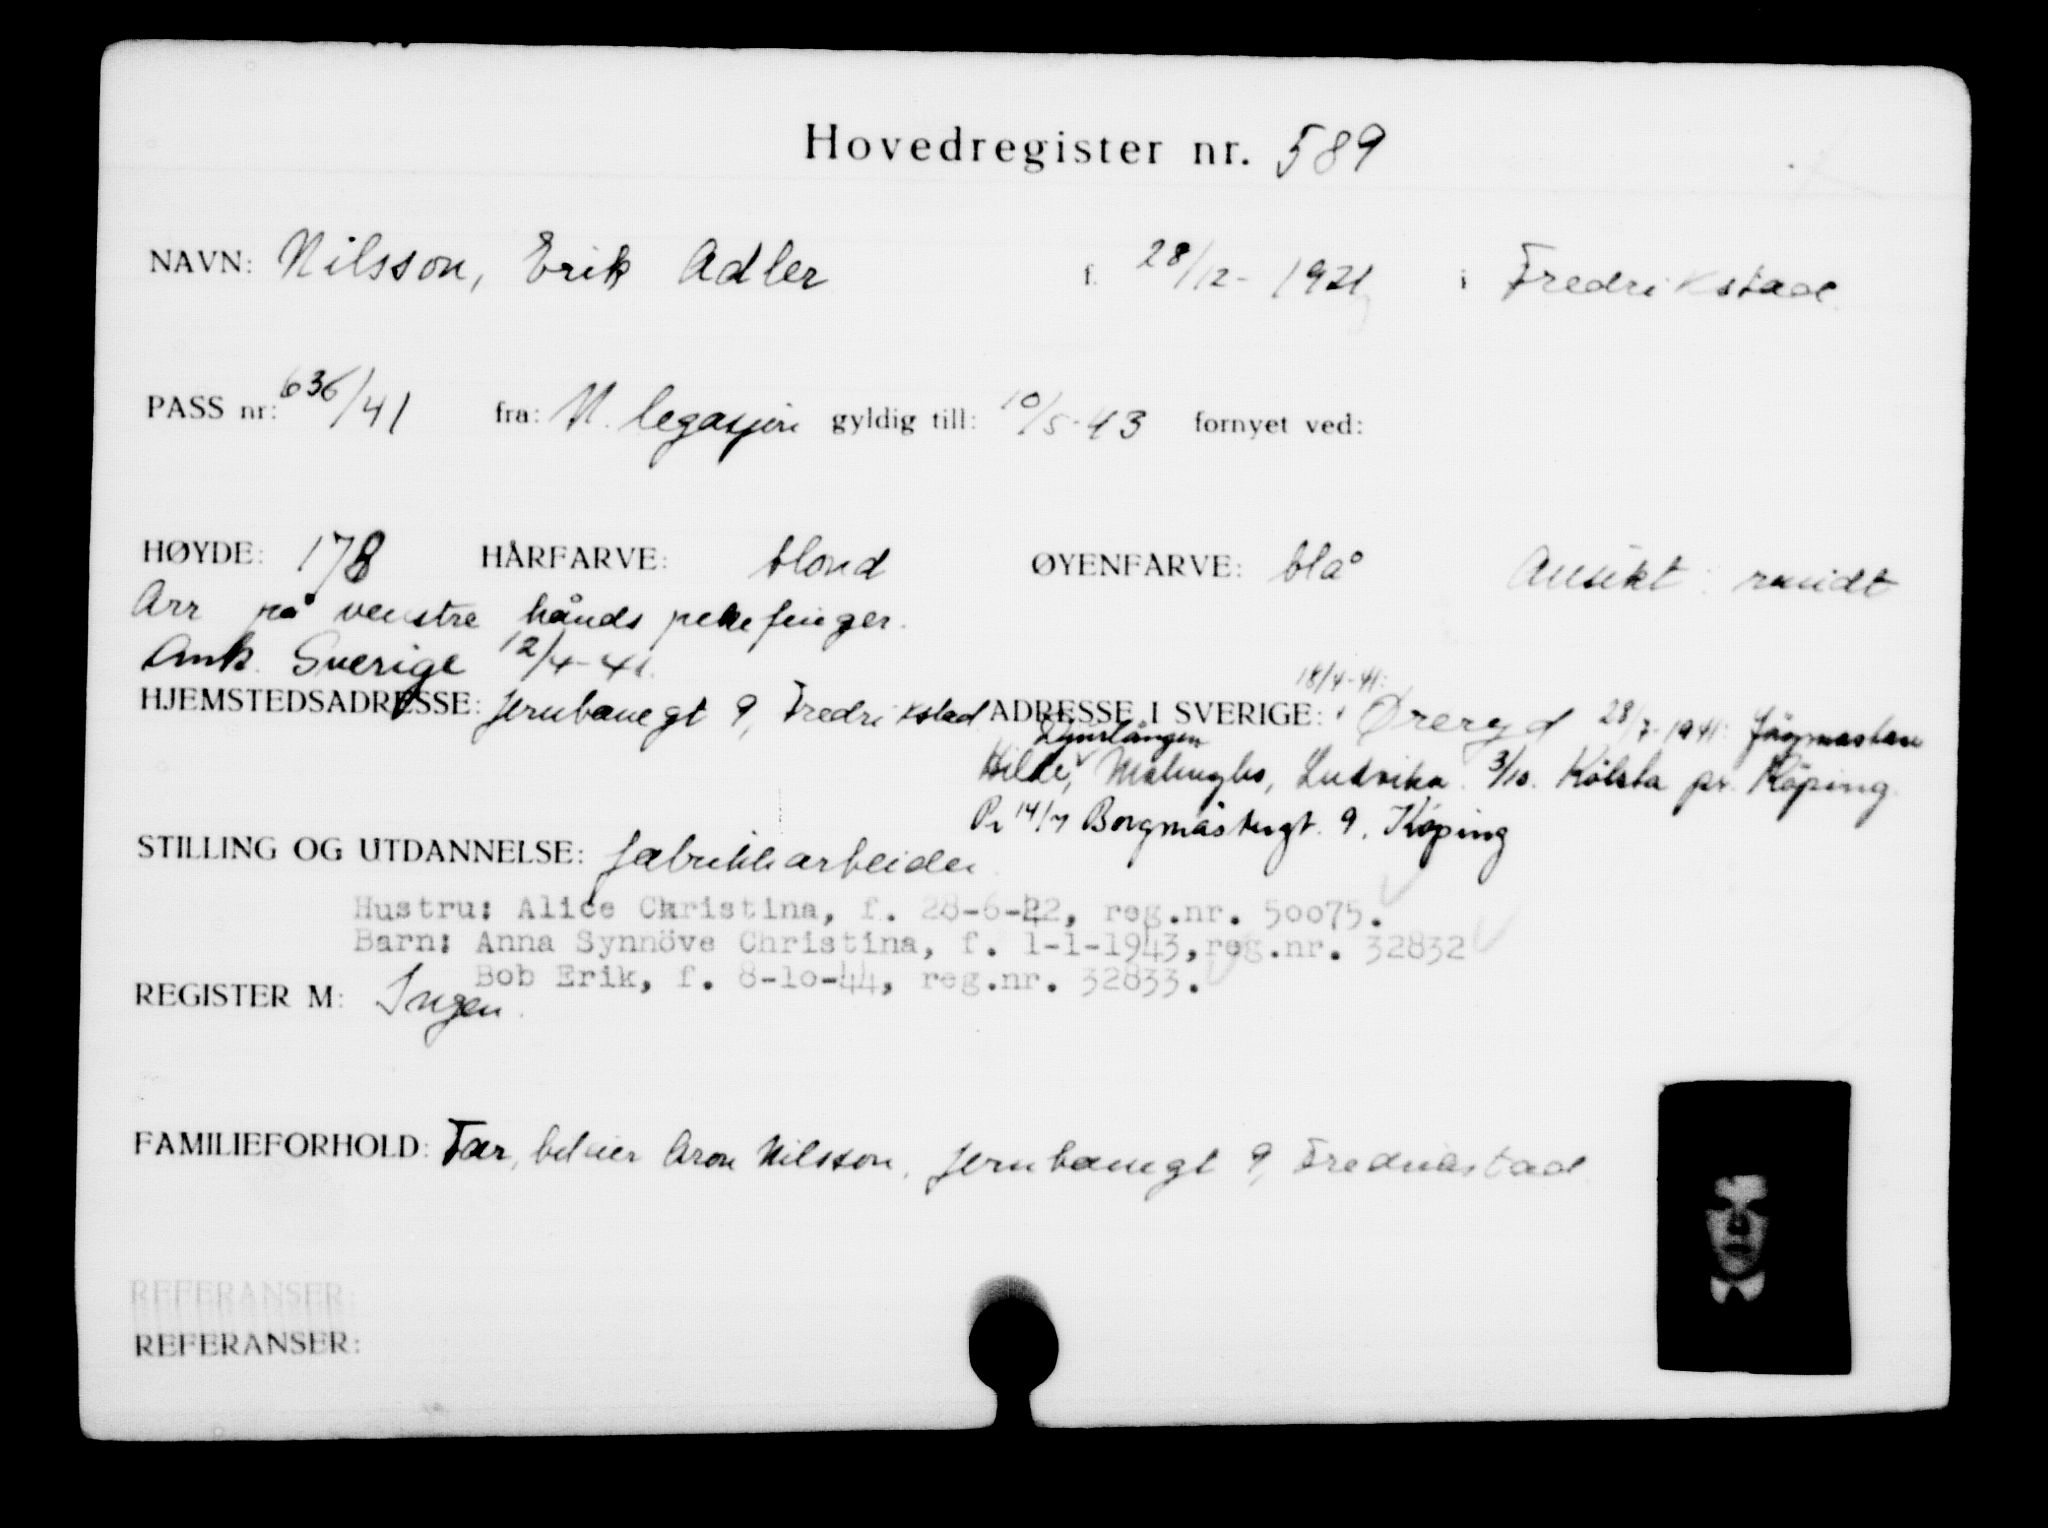 Hovedregister nr. 589
NAVN: Nilsson, Erik Adler f. 28/12-1921 i Fredrikstad
PASS nr: 636/41 fra: N. legasjon gyldig till: 10/5-43 fornyet ved:
HØYDE: 178 HÅRFARVE: blond ØYENFARVE: blå Ansikt: rundt
Arr på venstre hånds pekefinger.
Ank. Sverige 12/4-41.
HJEMSTEDSADRESSE: Jernbanegt 9, Fredrikstad ADRESSE I SVERIGE: 18/4-41: Øreryd 28/7-1941: Jägmastare
Hilde, Djurlången Malingbo, Ludvika. 3/10. Kölsta pr. Köping.
Pr 14/7 Borgmästergt. 9, Köping
STILLING OG UTDANNELSE: fabrikkarbeider.
Hustru: Alice Christina, f. 28-6-22, reg.nr. 50075.
Barn: Anna Synnöve Christina, f. 1-1-1943, reg.nr. 32832
Bob Erik, f. 8-10-44, reg.nr. 32833.
REGISTER M: Ingen.
FAMILIEFORHOLD: Far, Aron Nilsson, Jernbanegt 9, Fredrikstad.
REFERANSER:
REFERANSER: